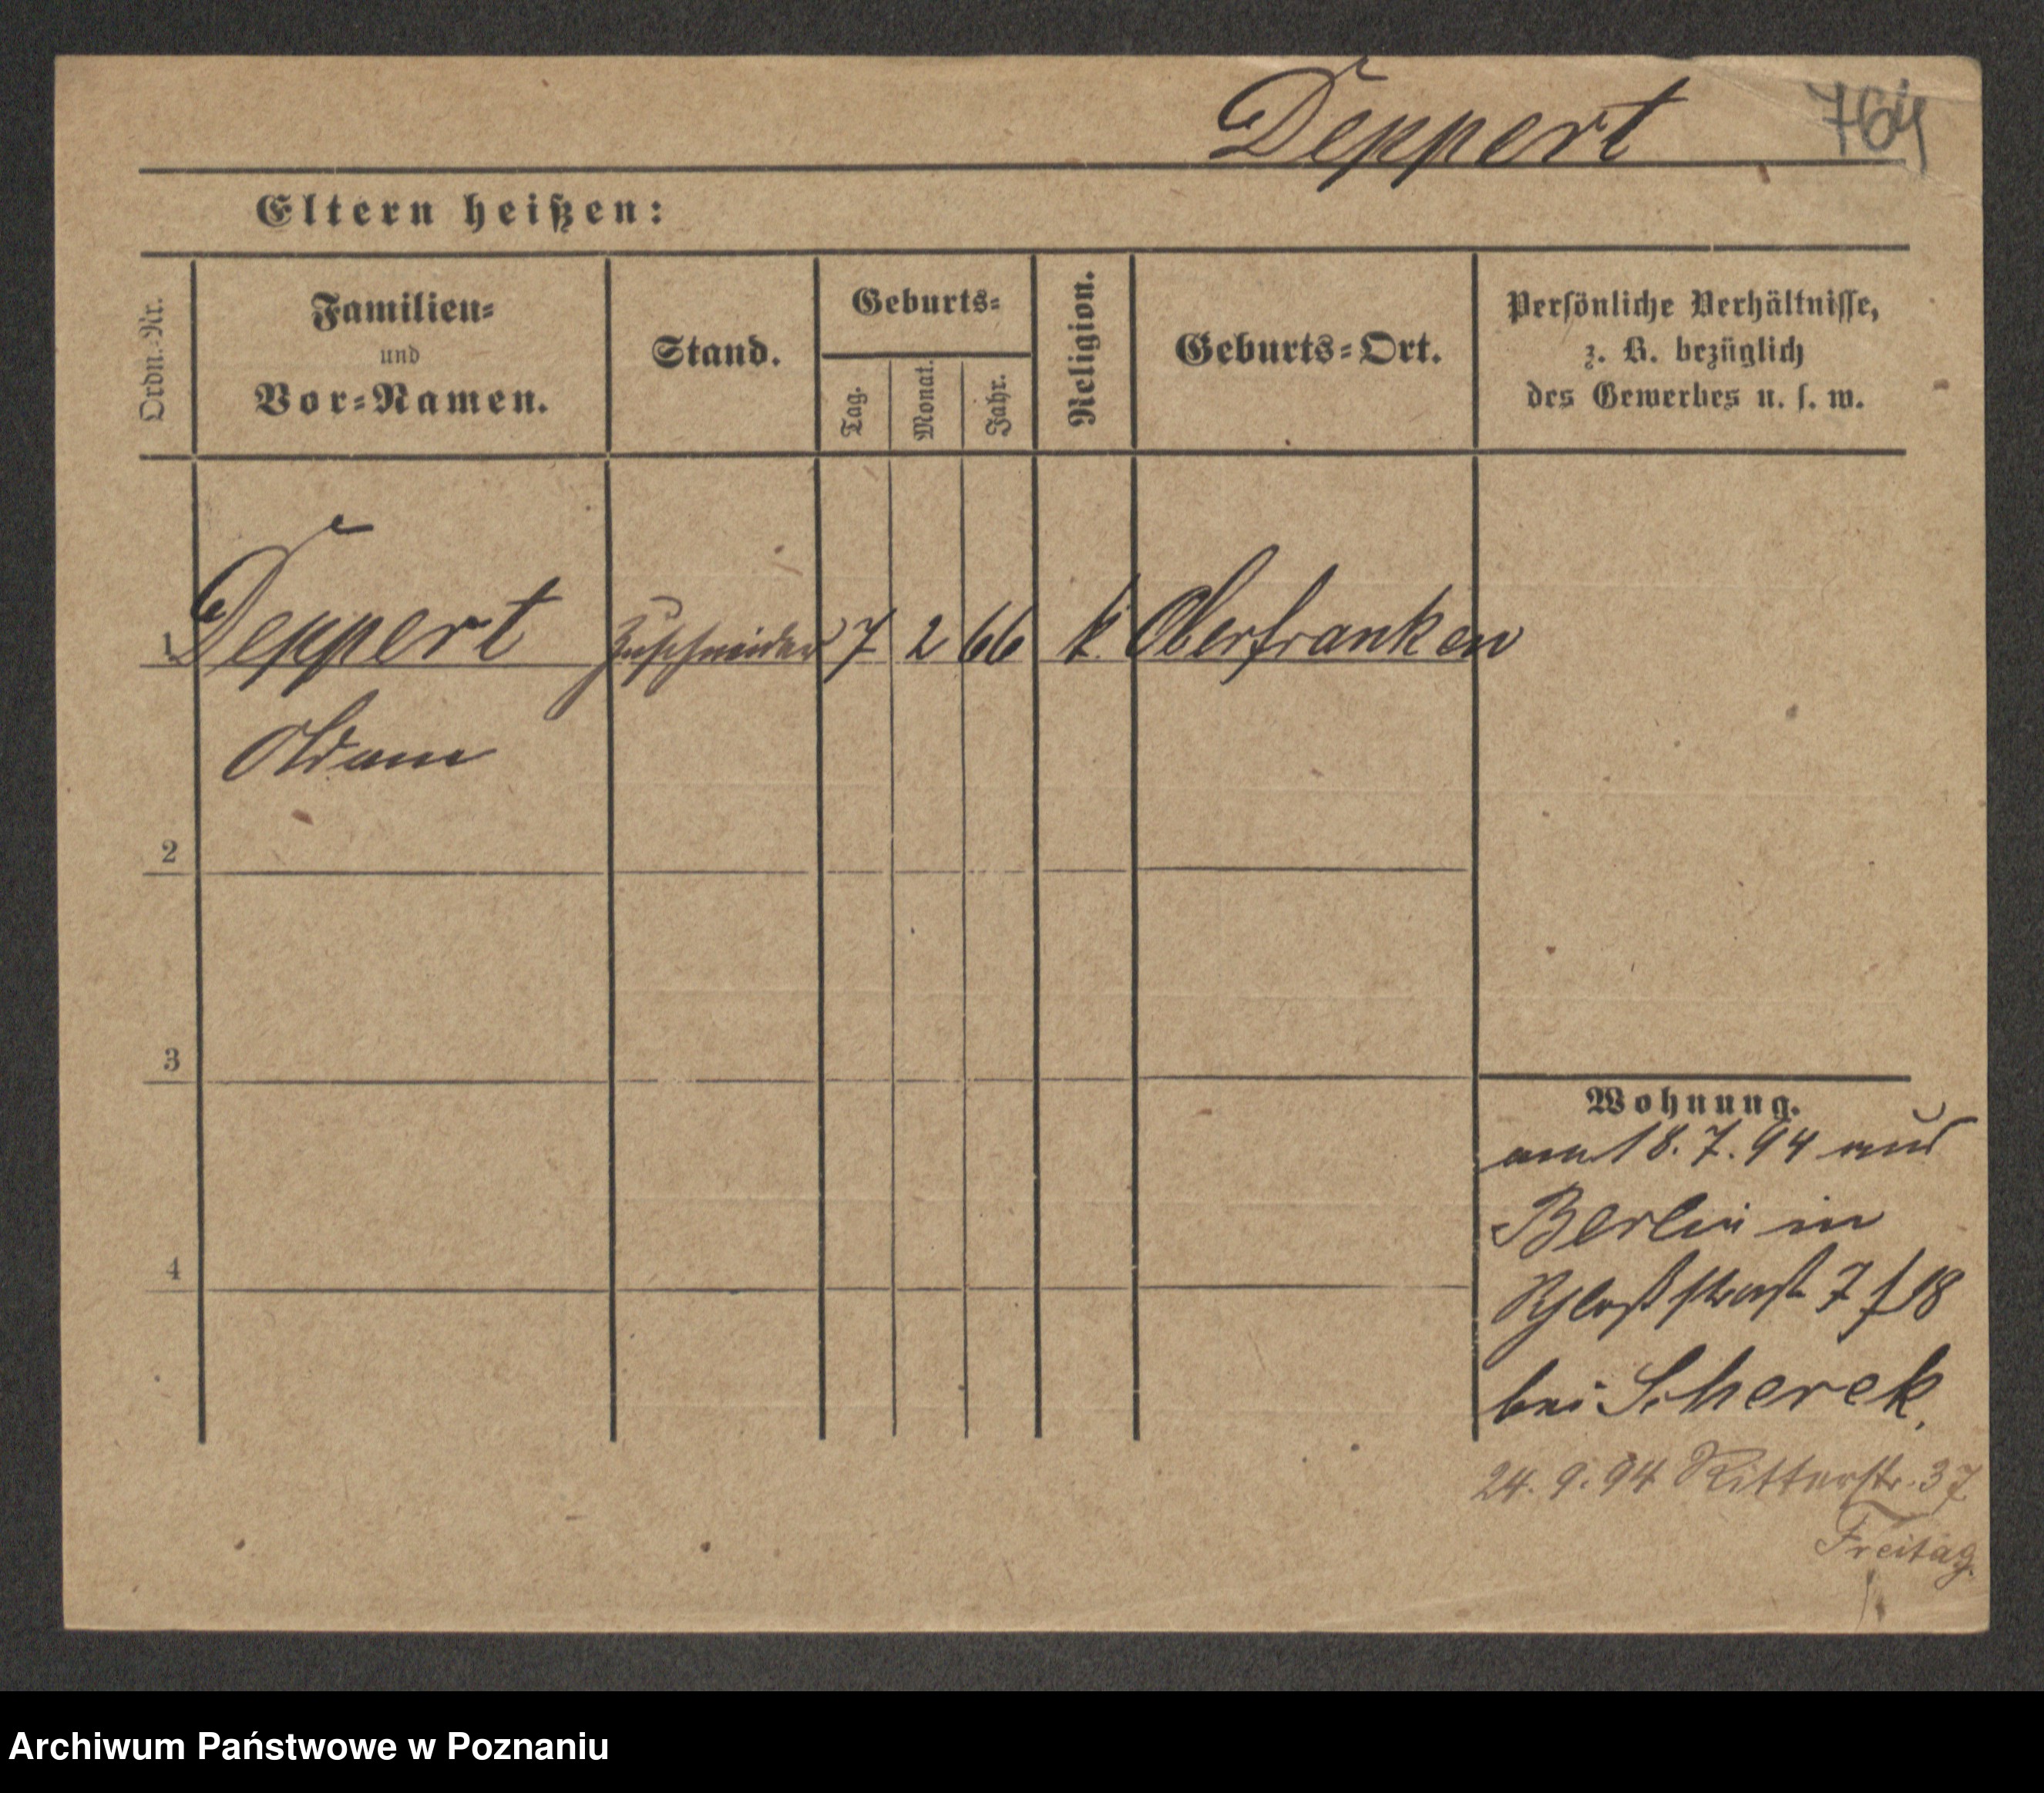 Deppert
764
Eltern heißen:
Ordn.-Nr.
Familien-
und
Vor-Namen.
Stand.
Geburts-
Tag.
Monat.
Jahr.
Religion.
Geburts-Ort.
Persönliche Verhältnisse,
z. B. bezüglich
des Gewerbes u. s. w.
1 Deppert Zuschneider 7 2 66 k. Oberfranken
Adam
2
3
4
Wohnung.
am 18.7.94 aus
Berlin in
Schloßstraße 7
bei Scherek.
24.9.94 Ritterstr. 37
Freitag.
Archiwum Państwowe w Poznaniu